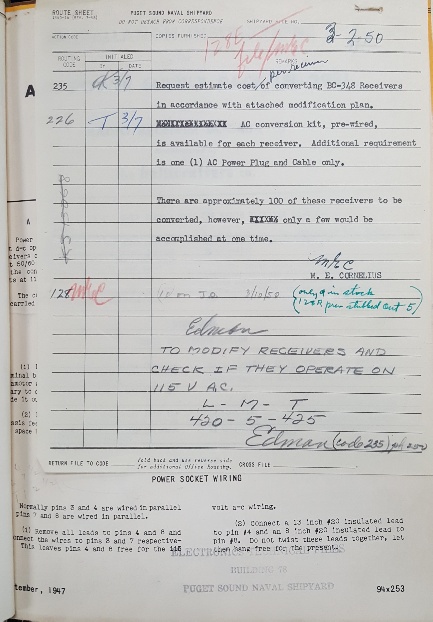 ROUTE SHEET
PUGET SOUND NAVAL SHIPYARD
DO NOT REMOVE FROM CORRESPONDENCE
SHIPYARD FILE NO.
ACTION CODE
COPIES FURNISHED
3-2-50
128E
file/mec
ROUTING CODE
INITIALED
BY
DATE
REMARKS
per receiver
A
235 3/7
Request estimate cost/of converting BC-348 Receivers
in accordance with attached modification plan.
226 T 3/7
AC conversion kit, pre-wired,
is available for each receiver. Additional requirement
is one (1) AC Power Plug and Cable only.
There are approximately 100 of these receivers to be
converted, however, only a few would be
accomplished at one time.
MEC
M. E. CORNELIUS
128 MEC
on J.O. 3/10/50
(only 9 in stock
Edman
TO MODIFY RECEIVERS AND
CHECK IF THEY OPERATE ON
115 V AC.
L - M - T
420 - 5 - 425
Edman (code 235)
RETURN FILE TO CODE
fold back and use reverse side
for additional office routing.
CROSS FILE
POWER SOCKET WIRING
Normally pins 3 and 4 are wired in parallel
pins 7 and 8 are wired in parallel.
(1) Remove all leads to pins 4 and 8 and
connect the wires to pins 3 and 7 respective-
This leaves pins 4 and 8 free for the 115
volt ac wiring.
(2) Connect a 13 inch #20 insulated lead
to pin #4 and an 8 inch #20 insulated lead to
pin #8. Do not twist these leads together, let
them hang free for the present.
BUILDING 78
PUGET SOUND NAVAL SHIPYARD
tember, 1947
94x253